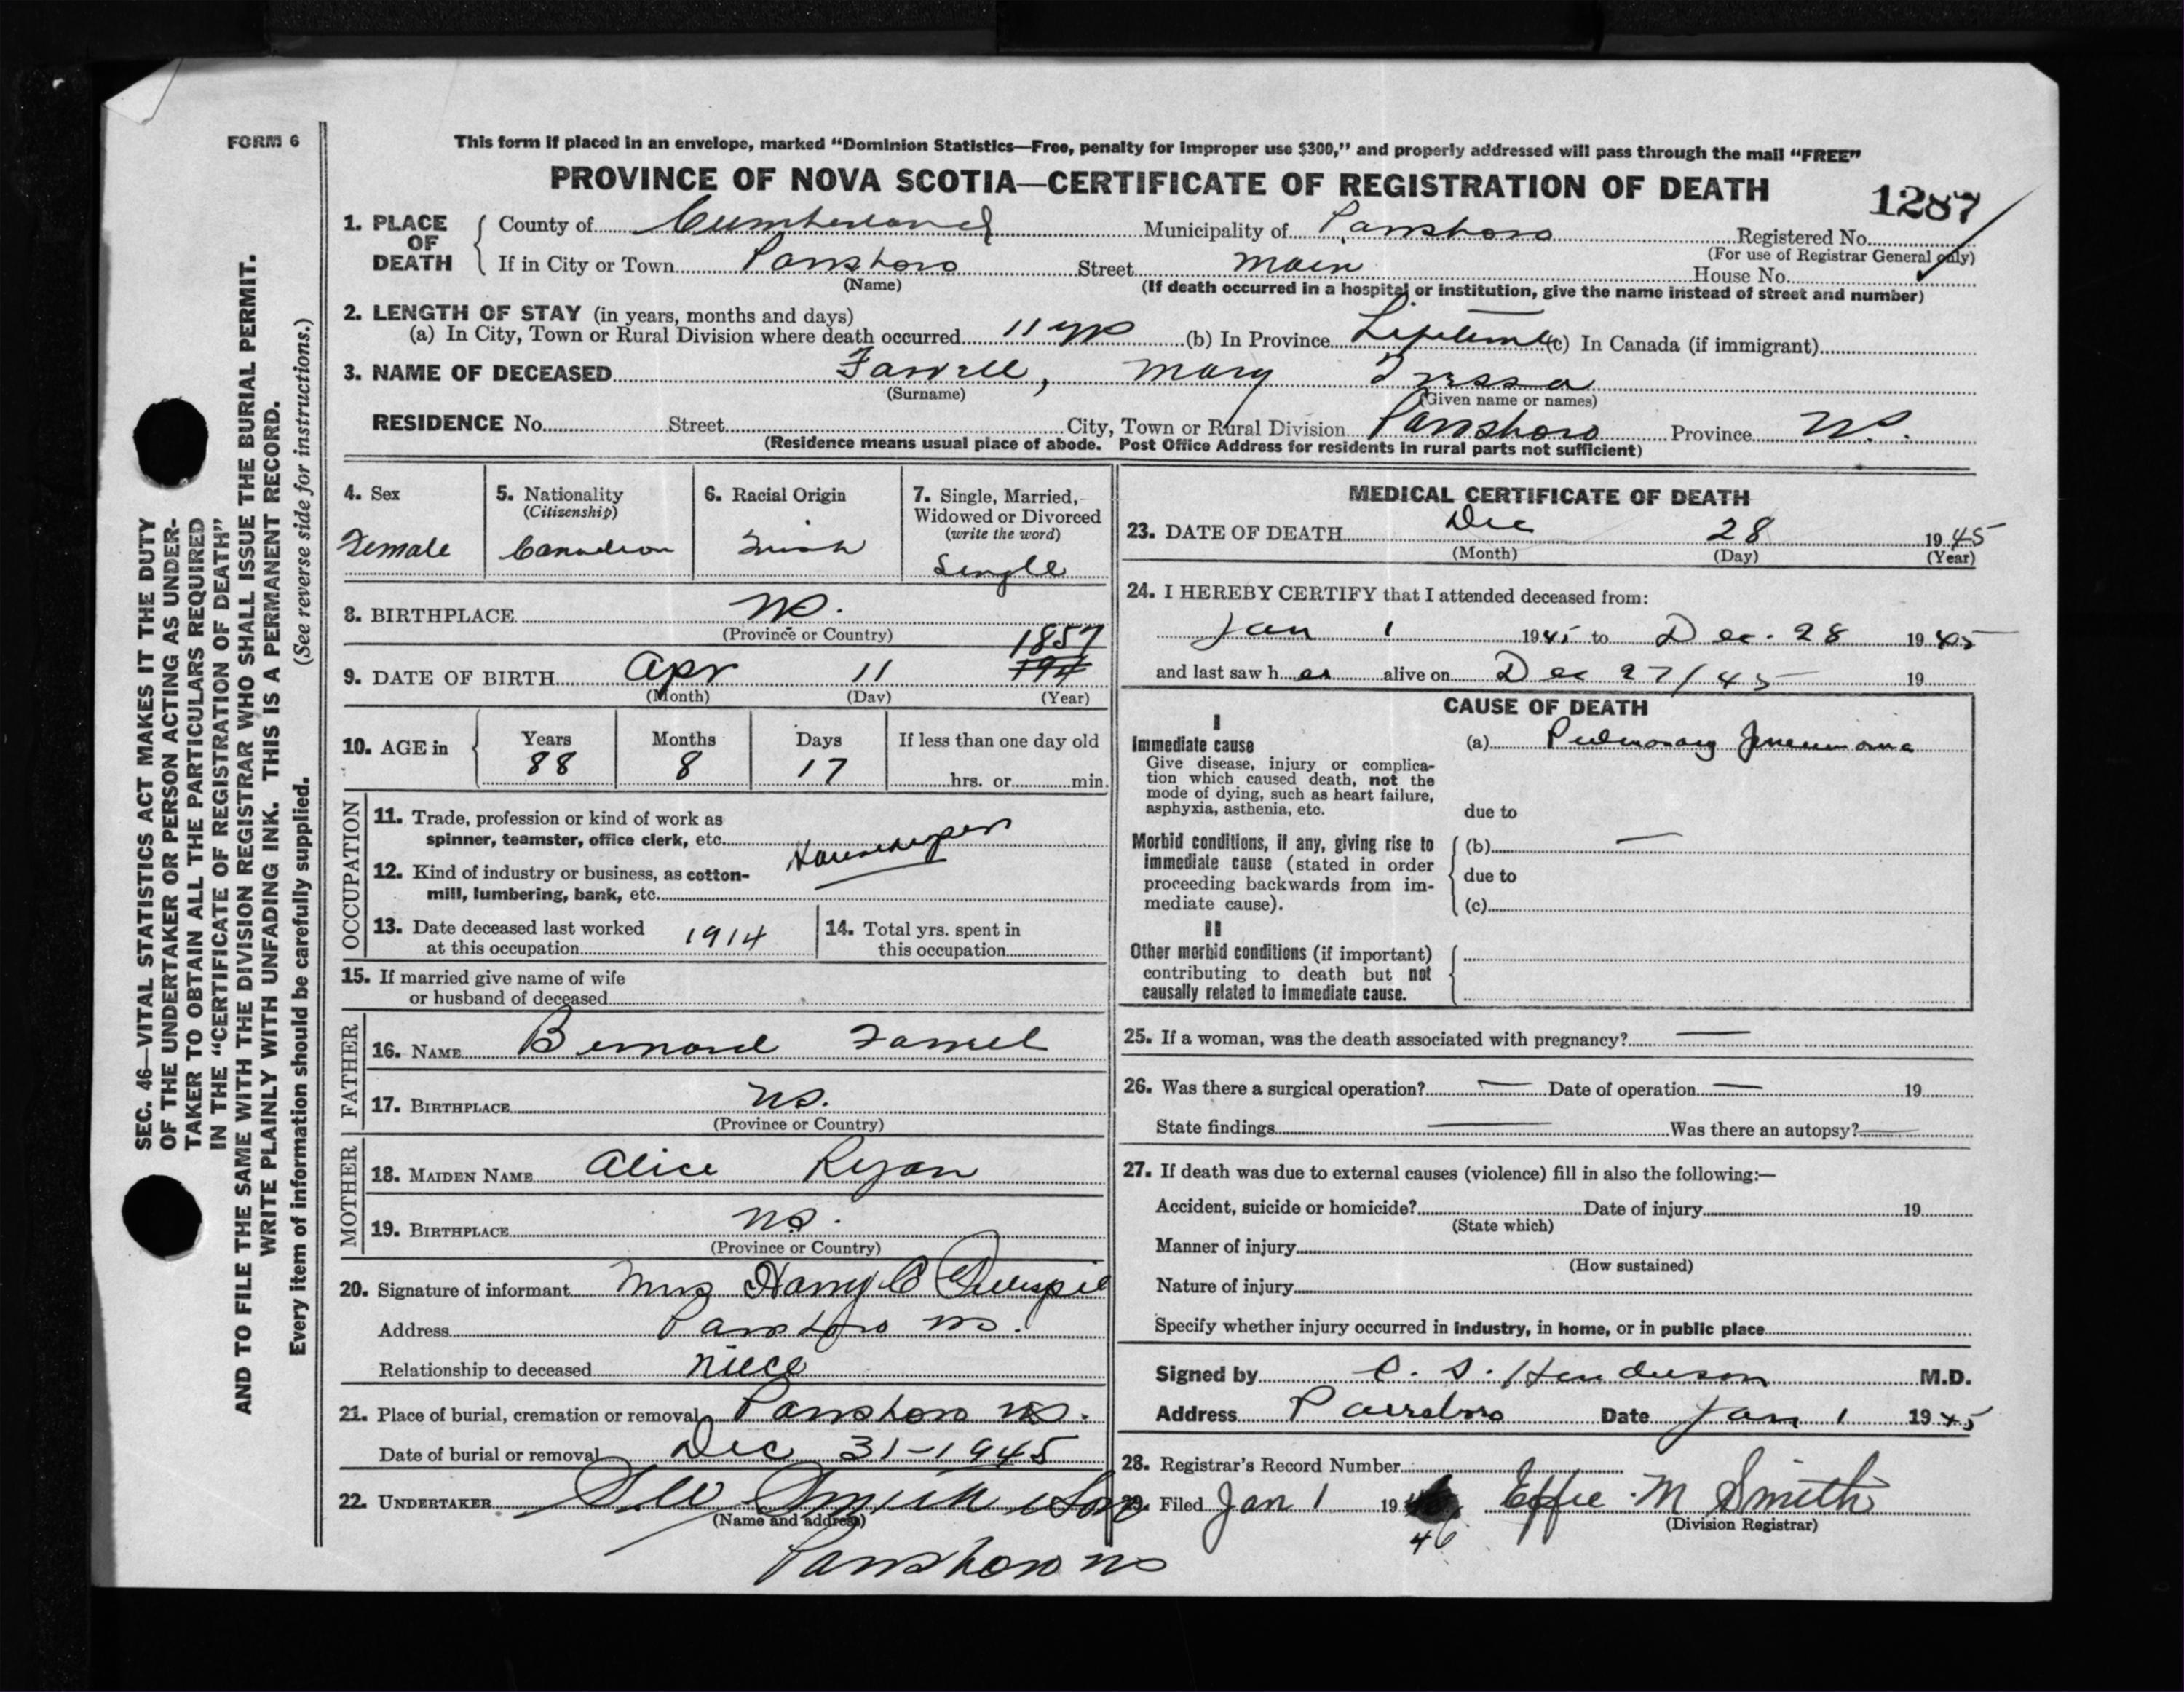 FORM 6
This form if placed in an envelope, marked "Dominion Statistics—Free, penalty for improper use $300," and properly addressed will pass through the mail "FREE"
PROVINCE OF NOVA SCOTIA—CERTIFICATE OF REGISTRATION OF DEATH
1287
1. PLACE OF DEATH
County of Cumberland Municipality of Parrsboro Registered No.
(For use of Registrar General only)
If in City or Town Parrsboro Street Main House No.
(Name) (If death occurred in a hospital or institution, give the name instead of street and number)
2. LENGTH OF STAY (in years, months and days)
(a) In City, Town or Rural Division where death occurred 11 yrs (b) In Province Lifetime (c) In Canada (if immigrant)
3. NAME OF DECEASED Farrell, Mary Tressa
(Surname) (Given name or names)
RESIDENCE No. Street City, Town or Rural Division Parrsboro Province N.S.
(Residence means usual place of abode. Post Office Address for residents in rural parts not sufficient)
4. Sex
Female
5. Nationality
(Citizenship)
Canadian
6. Racial Origin
Irish
7. Single, Married,
Widowed or Divorced
(write the word)
Single
8. BIRTHPLACE NS.
(Province or Country)
1857
9. DATE OF BIRTH Apr 11
(Month) (Day) (Year)
10. AGE in
Years Months Days If less than one day old
88 8 17 hrs. or min.
OCCUPATION
11. Trade, profession or kind of work as
spinner, teamster, office clerk, etc.
Housekeeper
12. Kind of industry or business, as cotton-
mill, lumbering, bank, etc.
13. Date deceased last worked
at this occupation 1914
14. Total yrs. spent in
this occupation
15. If married give name of wife
or husband of deceased
FATHER
16. NAME Bernard Farrel
17. BIRTHPLACE NS.
(Province or Country)
MOTHER
18. MAIDEN NAME Alice Ryan
19. BIRTHPLACE NS.
(Province or Country)
20. Signature of informant Mrs Harry C Gillespie
Address Parrsboro NS.
Relationship to deceased niece
21. Place of burial, cremation or removal Parrsboro NS.
Date of burial or removal Dec 31-1945
22. UNDERTAKER Smith & Son
(Name and address)
Parrsboro NS
MEDICAL CERTIFICATE OF DEATH
23. DATE OF DEATH Dec 28 1945
(Month) (Day) (Year)
24. I HEREBY CERTIFY that I attended deceased from:
Jan 1 1945 to Dec. 28 1945
and last saw her alive on Dec 27/45 19
CAUSE OF DEATH
I
Immediate cause
Give disease, injury or complica-
tion which caused death, not the
mode of dying, such as heart failure,
asphyxia, asthenia, etc.
(a) Pulmonary Pneumonia
due to
Morbid conditions, if any, giving rise to
immediate cause (stated in order
proceeding backwards from im-
mediate cause).
(b) —
due to
(c)
II
Other morbid conditions (if important)
contributing to death but not
causally related to immediate cause.
25. If a woman, was the death associated with pregnancy? —
26. Was there a surgical operation? — Date of operation — 19
State findings — Was there an autopsy? —
27. If death was due to external causes (violence) fill in also the following:—
Accident, suicide or homicide? Date of injury 19
(State which)
Manner of injury
(How sustained)
Nature of injury
Specify whether injury occurred in industry, in home, or in public place
Signed by C. S. Henderson M.D.
Address Parrsboro Date Jan 1 1945
28. Registrar's Record Number
29. Filed Jan 1 19 46 Effie M Smith
(Division Registrar)
SEC. 46—VITAL STATISTICS ACT MAKES IT THE DUTY
OF THE UNDERTAKER OR PERSON ACTING AS UNDER-
TAKER TO OBTAIN ALL THE PARTICULARS REQUIRED
IN THE "CERTIFICATE OF REGISTRATION OF DEATH"
AND TO FILE THE SAME WITH THE DIVISION REGISTRAR WHO SHALL ISSUE THE BURIAL PERMIT.
WRITE PLAINLY WITH UNFADING INK. THIS IS A PERMANENT RECORD.
Every item of information should be carefully supplied. (See reverse side for instructions.)